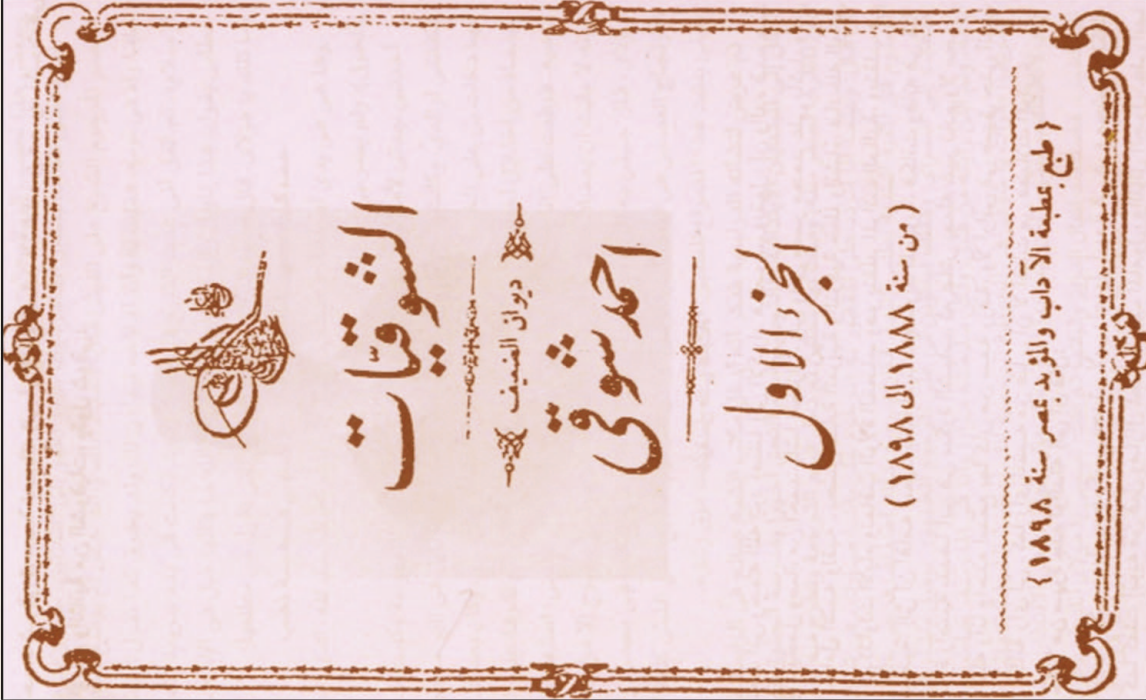 الشوقيات
ديوان الضعيف
احمد شوقي
الجزء الاول
(من سنة ١٨٨٨ الى ١٨٩٨)
(طبع بمطبعة الآداب والمؤيد بمصر سنة ١٨٩٨)